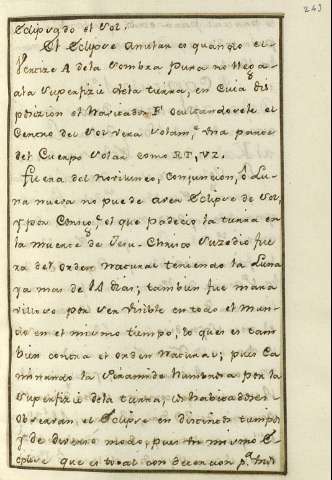 243
Eclipsado el Sol.
El Eclipse Anular es quando el
Vertize A de la Sombra pura no llega
a la Superfizie de la tierra, en cuia dis
posizion el Navegador F. ocultandosele el
Centro del Sol vera Solamᵗᵉ una parte
del Cuerpo Solar como RT, VZ.
Fuera del Novilunio, Conjuncion, ô Lu
na nueva no puede aver Eclipse de Sol,
y por Consigᵗᵉ el que padecio la tierra en
la muerte de Jesu-Christo Suzedio fue
ra del orden natural teniendo la Luna
ya mas de 14 dias; tambien fue mara
villoso por ser Visible en todo el Mun
do en el mismo tiempo, lo que es tam
bien contra el orden Natural; pues Ca
minando la Piramide Umbrosa por la
Superfizie de la tierra, los habitadores
observaran el Eclipse en distintos tiempos
y de diverso modo, pues un mismo E
clipse que es total con detencion pᵃ